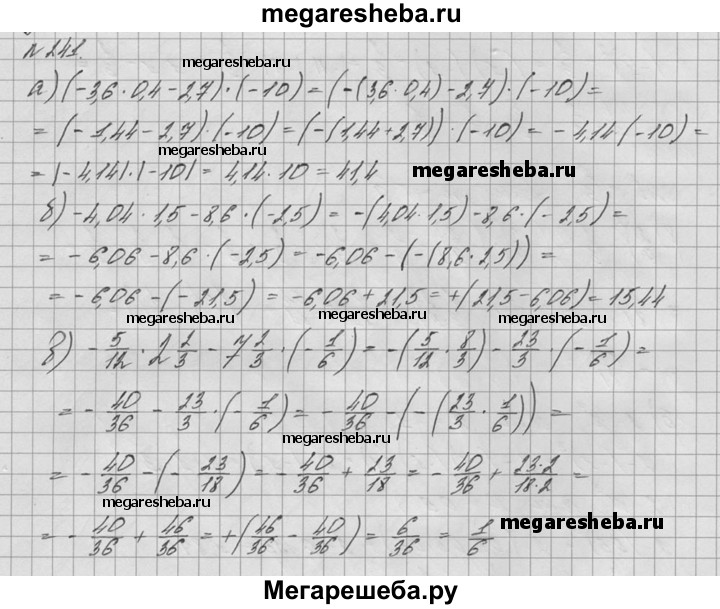 megaresheba.ru
№241.
megaresheba.ru
а) (-3,6·0,4-2,7)·(-10)=(-(3,6·0,4)-2,7)·(-10)=
=(-1,44-2,7)·(-10)=(-(1,44+2,7))·(-10)=-4,14·(-10)=
megaresheba.ru
=|-4,14|·|-10|=4,14·10=41,4 megaresheba.ru
б) -4,04·1,5-8,6·(-2,5)=-(4,04·1,5)-8,6·(-2,5)=
megaresheba.ru
=-6,06-8,6·(-2,5)=-6,06-(-(8,6·2,5))=
=-6,06-(-21,5)=-6,06+21,5=+(21,5-6,06)=15,44
megaresheba.ru megaresheba.ru
в) -5/12·2 2/3-7 2/3·(-1/6)=-(5/12·8/3)-23/3·(-1/6)=
=-40/36-23/3·(-1/6)=-40/36-(-(23/3·1/6))=
megaresheba.ru
=-40/36-(-23/18)=-40/36+23/18=-40/36+23·2/18·2=
megaresheba.ru
=-40/36+46/36=+(46/36-40/36)=6/36=1/6 megaresheba.ru
megaresheba.ru
Мегарешеба.ру